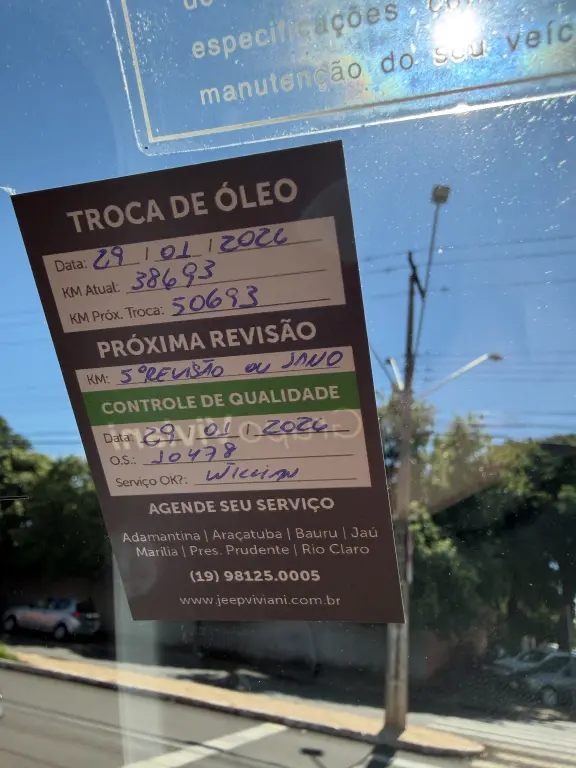 especificações
manutenção do seu veíc
TROCA DE ÓLEO
Data: 29 / 01 / 2026
KM Atual: 38693
KM Próx. Troca: 50693
PRÓXIMA REVISÃO
KM: 5ª REVISÃO OU 1ANO
CONTROLE DE QUALIDADE
Data: 29 / 01 / 2026
O.S.: 10478
Serviço OK?: WILLIAN
AGENDE SEU SERVIÇO
Adamantina | Araçatuba | Bauru | Jaú
Marília | Pres. Prudente | Rio Claro
(19) 98125.0005
www.jeepviviani.com.br